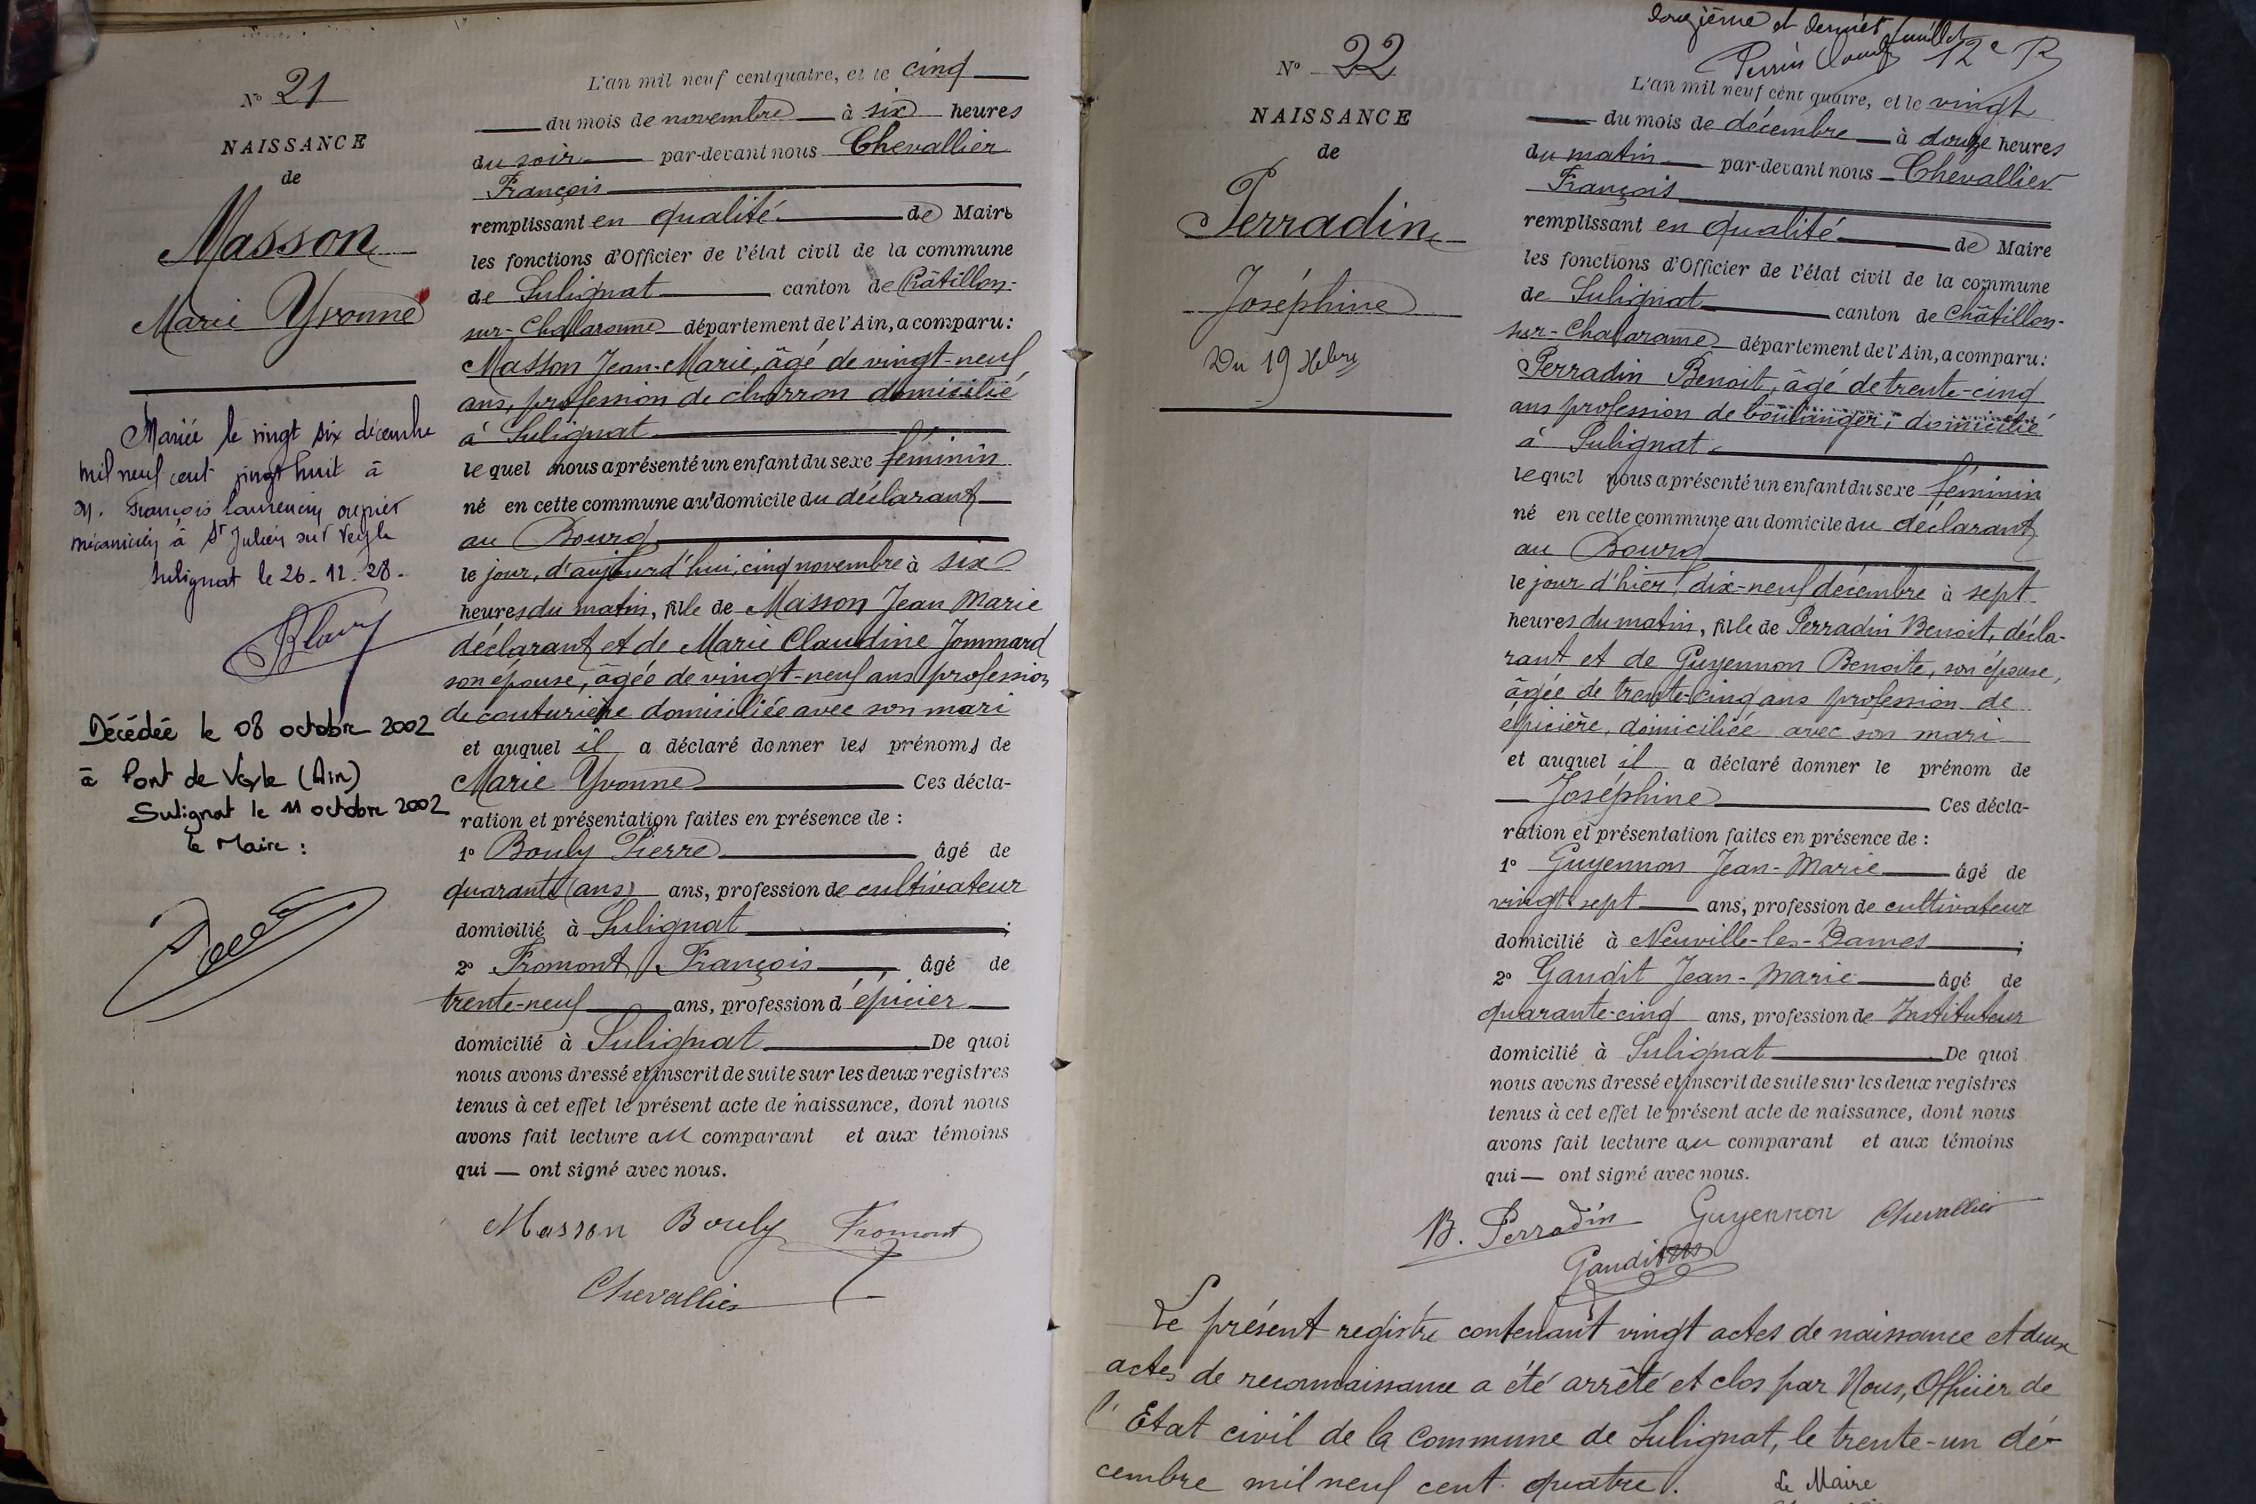 N° 21
NAISSANCE
de
Masson
Marie Yvonne
Mariée le vingt six décembre
mil neuf cent vingt huit à
M. François Laurencin ouvrier
mécanicien à St Julien sur Veyle
Sulignat le 26-12-28-
Décédée le 08 octobre 2002
à Pont de Veyle (Ain)
Sulignat le 11 octobre 2002
Le Maire :
L'an mil neuf cent quatre, et le cinq
du mois de novembre à six heures
du soir par-devant nous Chevallier
François
remplissant en qualité de Maire
les fonctions d'Officier de l'état civil de la commune
de Sulignat canton de Châtillon-
sur-Chalaronne département de l'Ain, a comparu :
Masson Jean-Marie, âgé de vingt-neuf
ans, profession de charron domicilié
à Sulignat
lequel nous a présenté un enfant du sexe féminin
né en cette commune au domicile du déclarant
au Bourg
le jour, d'aujourd'hui, cinq novembre à six
heures du matin, fille de Masson Jean Marie
déclarant et de Marie Claudine Jommard
son épouse, âgée de vingt-neuf ans profession
de couturière domiciliée avec son mari
et auquel il a déclaré donner les prénoms de
Marie Yvonne Ces décla-
ration et présentation faites en présence de :
1° Bouly Pierre âgé de
quarante (ans) ans, profession de cultivateur
domicilié à Sulignat ;
2° Fromont François, âgé de
trente-neuf ans, profession d'épicier
domicilié à Sulignat De quoi
nous avons dressé et inscrit de suite sur les deux registres
tenus à cet effet le présent acte de naissance, dont nous
avons fait lecture au comparant et aux témoins
qui — ont signé avec nous.
Masson Bouly Fromont
Chevallier
douzième et dernier feuillet
12e
N° 22
NAISSANCE
de
Perradin
Joséphine
Du 19 Xbre
L'an mil neuf cent quatre, et le vingt
du mois de décembre à douze heures
du matin par-devant nous Chevallier
François
remplissant en qualité de Maire
les fonctions d'Officier de l'état civil de la commune
de Sulignat canton de Châtillon-
sur-Chalaronne département de l'Ain, a comparu :
Perradin Benoit, âgé de trente-cinq
ans profession de boulanger, domicilié
à Sulignat
lequel nous a présenté un enfant du sexe féminin
né en cette commune au domicile du déclarant
au Bourg
le jour d'hier, dix-neuf décembre à sept
heures du matin, fille de Perradin Benoit, décla-
rant et de Guyennon Benoite, son épouse,
âgée de trente-cinq ans profession de
épicière, domiciliée avec son mari
et auquel il a déclaré donner le prénom de
Joséphine Ces décla-
ration et présentation faites en présence de :
1° Guyennon Jean-Marie âgé de
vingt sept ans, profession de cultivateur
domicilié à Neuville-les-Dames ;
2° Gaudit Jean-Marie âgé de
quarante-cinq ans, profession de Instituteur
domicilié à Sulignat De quoi
nous avons dressé et inscrit de suite sur les deux registres
tenus à cet effet le présent acte de naissance, dont nous
avons fait lecture au comparant et aux témoins
qui — ont signé avec nous.
B. Perradin Guyennon Chevallier
Gaudit
Le présent registre contenant vingt actes de naissance et deux
actes de reconnaissance a été arrêté et clos par Nous, Officier de
l'Etat civil de la Commune de Sulignat, le trente-un dé-
cembre mil neuf cent quatre.
Le Maire